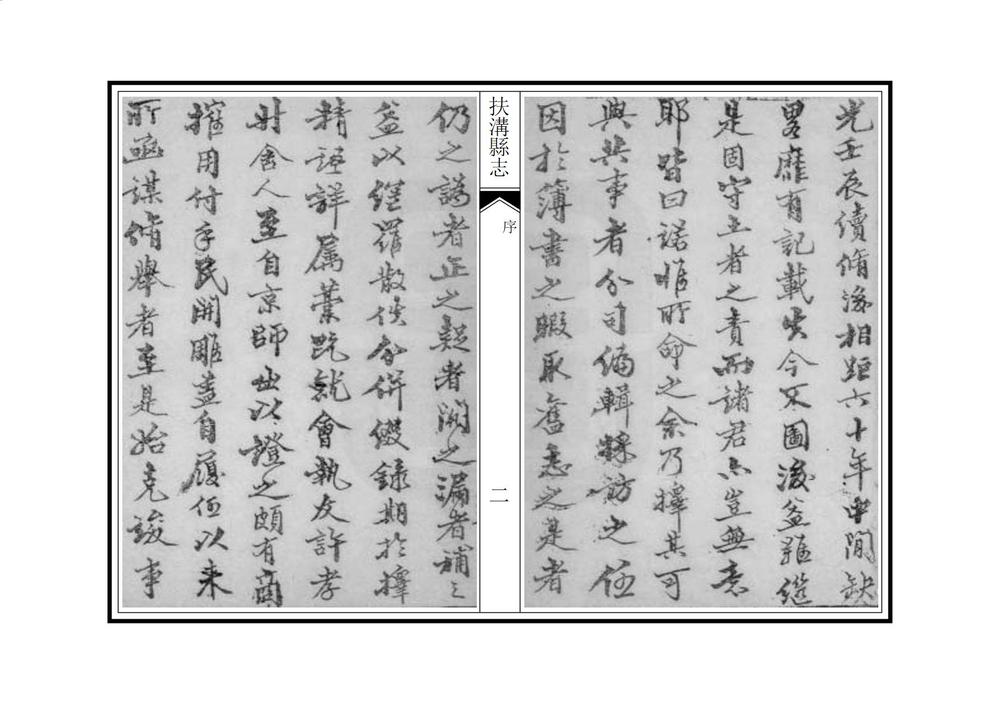 光壬辰續脩後相距六十年中間缺
畧靡有記載失今不圖後益難継
是固守土者之責而諸君亦豈無意
耶皆曰諾惟所命之余乃擇其可
與共事者分司備輯採訪之任
因於簿書之暇取舊志之是者
扶溝縣志
序
二
仍之誤者正之疑者闕之漏者補之
益以網羅散佚分併綴錄期於擇
精語詳属藁既就會執友許孝
廉舍人至自京師出以證之頗有商
搉用付手民開雕盖自履任以来
所亟謀脩舉者至是始克竣事